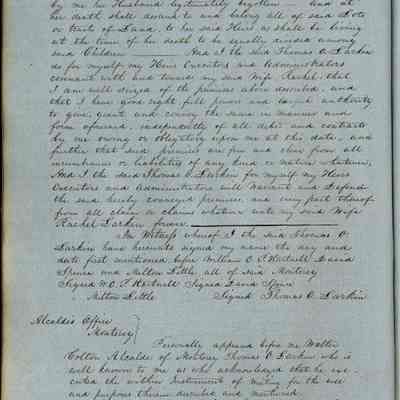 by me her Husband legitimately begotten — And at
her death shall descend to and belong all of said Lots
or tract of Land, to her said Heirs as shall be living
at the time of her death to be equally divided among
said Children And I the said Thomas O. Larkin
do for myself my Heirs Executors and Administrators
covenant with and toward my said Wife Rachel, that
I am well seized of the premises above described, and
that I have good right, full power and lawful authority
to give, grant and convey the same in manner and
form aforesaid, independently of all debts and contracts
by me owing or obligatory upon me at this date, and
further that said premises are free and clear from all
incumbrances or liabilities of any kind or nature whatever,
And I the said Thomas O. Larkin for myself my Heirs
Executors and Administrators will Warrant and Defend
the said hereby conveyed premises, and every part thereof
from all claim or claims whatever unto my said Wife
Rachel Larkin forever
In Witness whereof I the said Thomas O.
Larkin have hereunto signed my name the day and
date first mentioned before William E. P. Hartnell David
Spence and Milton Little, all of said Monterey
Signed W. E. P. Hartnell Signed David Spence
Milton Little Signed Thomas O. Larkin
Alcaldes Office
Monterey
Personally appeared before me Walter
Colton Alcalde of Monterey Thomas O. Larkin who is
well known to me as who acknowledged that he exe-
cuted the within Instrument of Writing for the use
and purposes therein described and mentioned